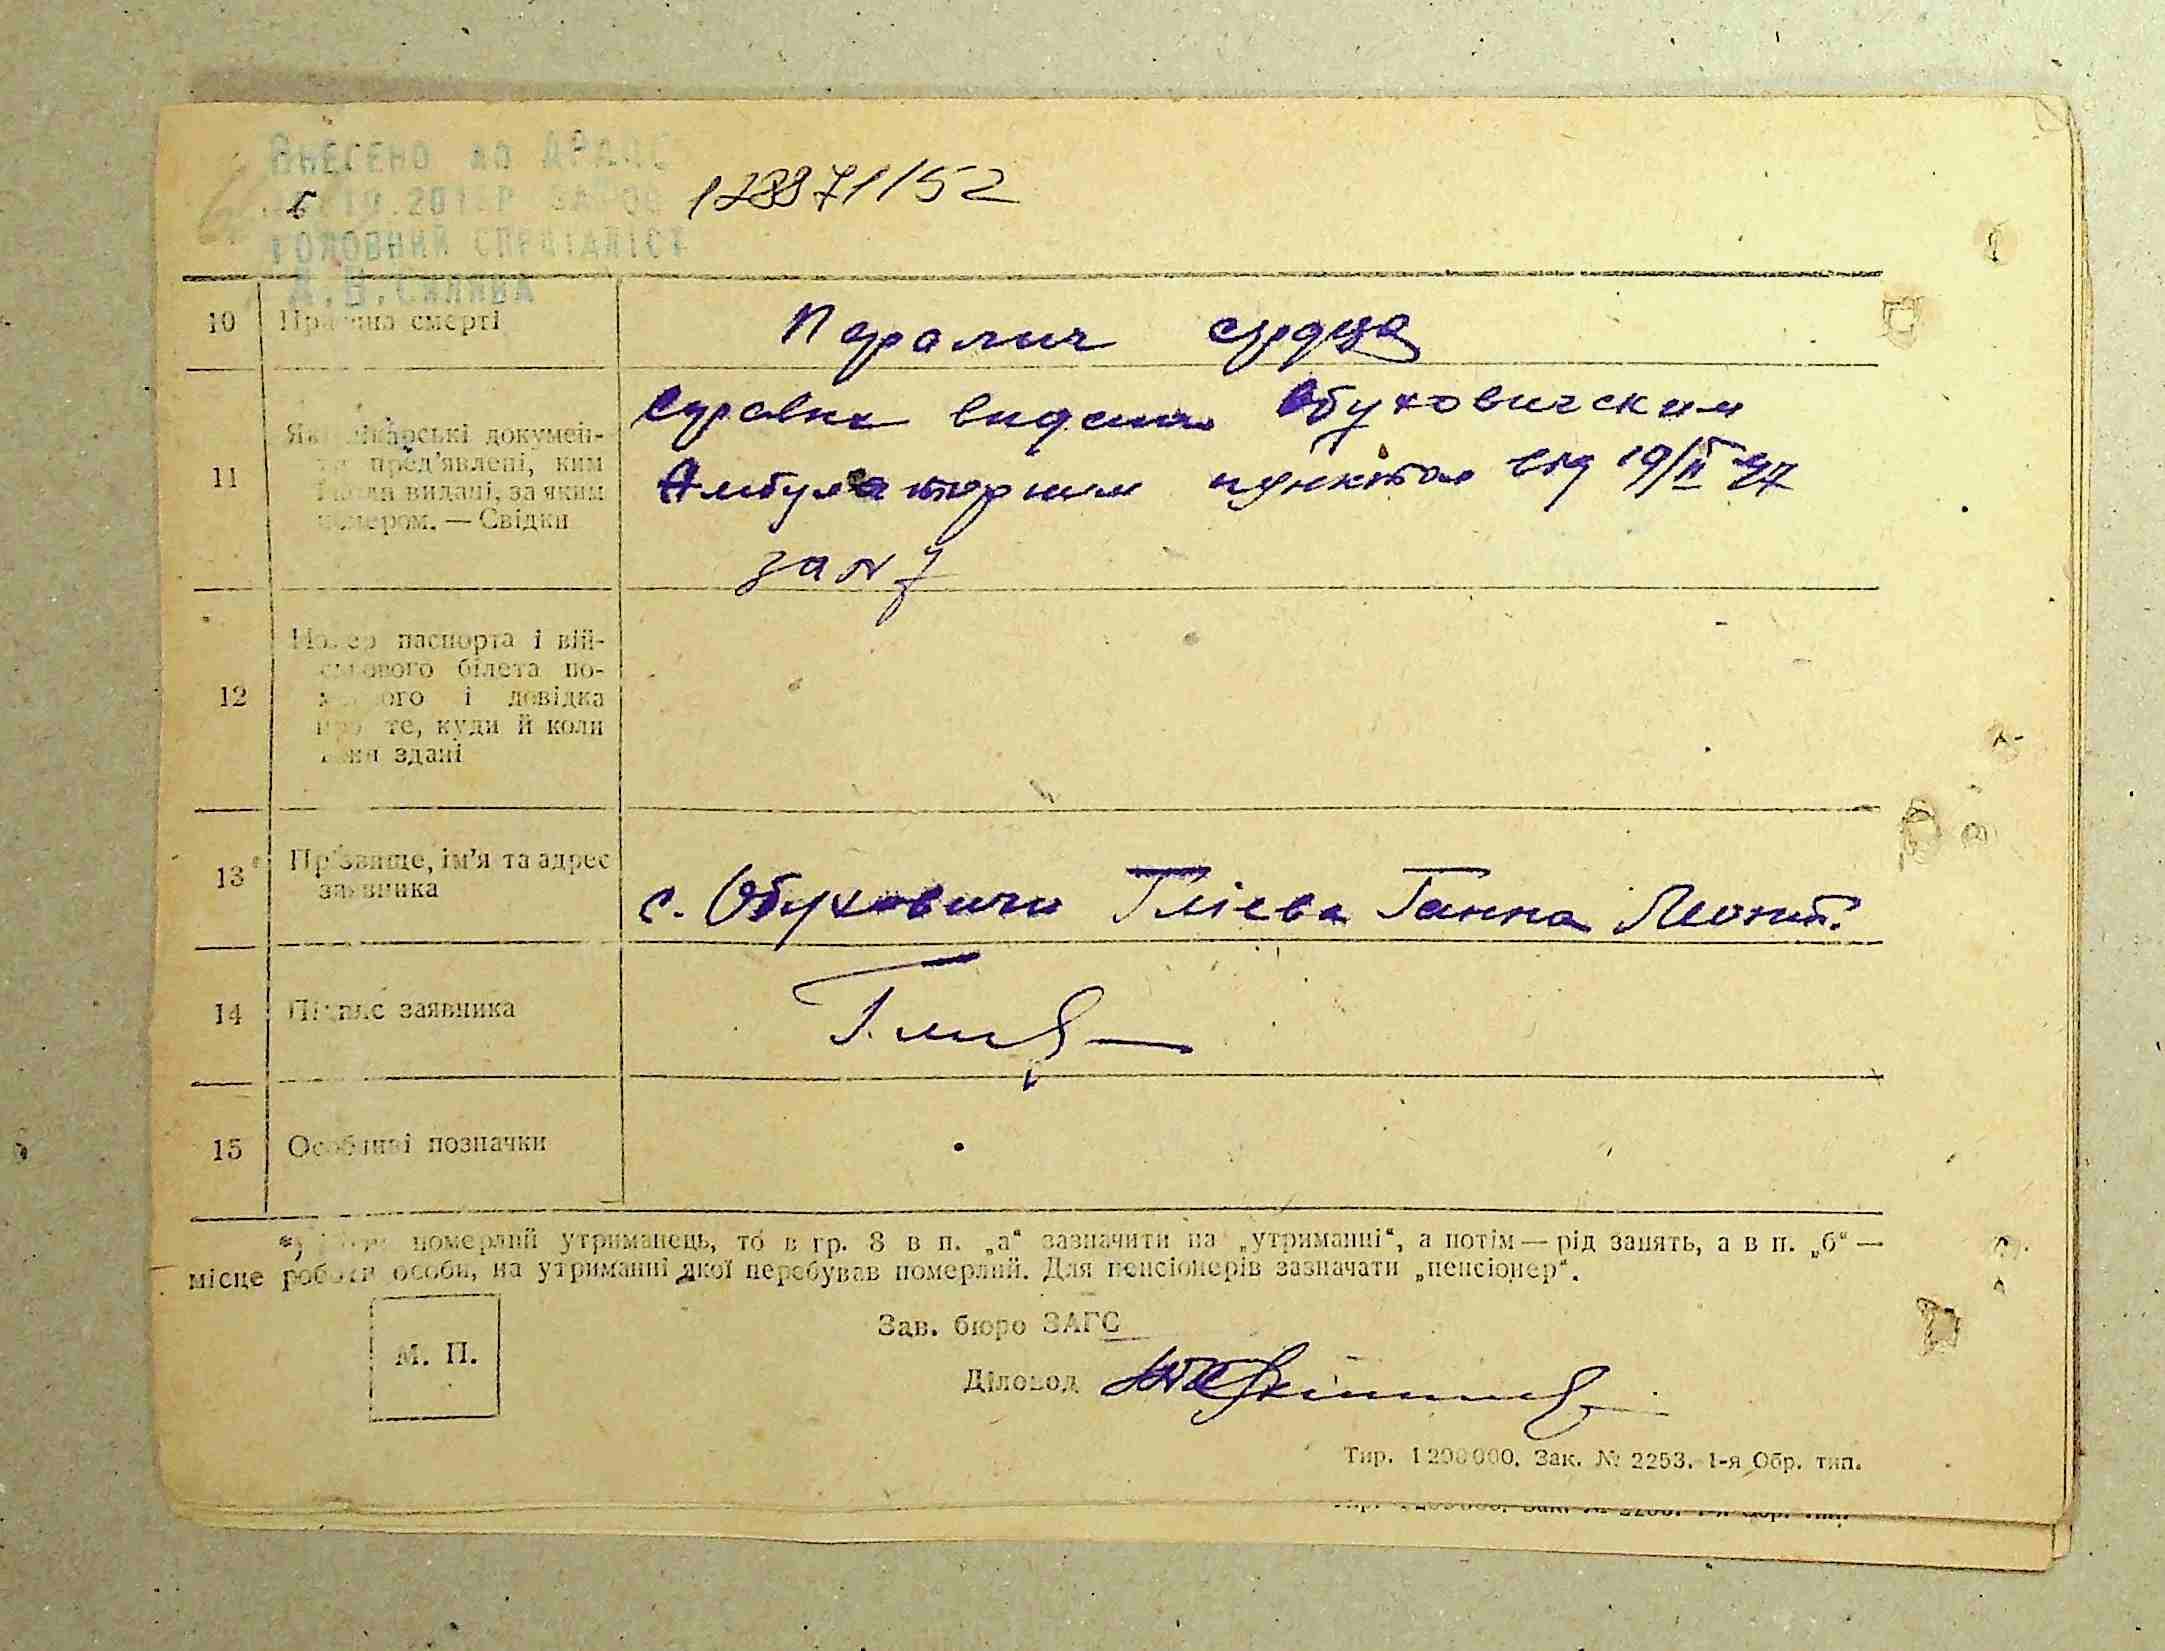 Внесено до ДРАЦС
128871/52
головний спеціаліст
10 Причина смерті
Параліч серця
11 Які лікарські докумен-
ти пред'явлені, ким
й коли видані, за яким
номером. — Свідки
Справка видана Обуховичским
Амбулаторним пунктом від 19/II 47
за № 7
12 Номер паспорта і вій-
ськового білета по-
мерлого і довідка
про те, куди й коли
вони здані
13 Прізвище, ім'я та адрес
заявника
с. Обуховичи Глієва Ганна Леонт.
14 Підпис заявника
15 Особливі позначки
померлий утриманець, то в гр. 8 в п. „а“ зазначити на „утриманні“, а потім — рід занять, а в п. „б“ —
місце роботи особи, на утриманні якої перебував померлий. Для пенсіонерів зазначати „пенсіонер“.
М. П.
Зав. бюро ЗАГС
Діловод
Тир. 1 200 000. Зак. № 2253. 1-я Обр. тип.